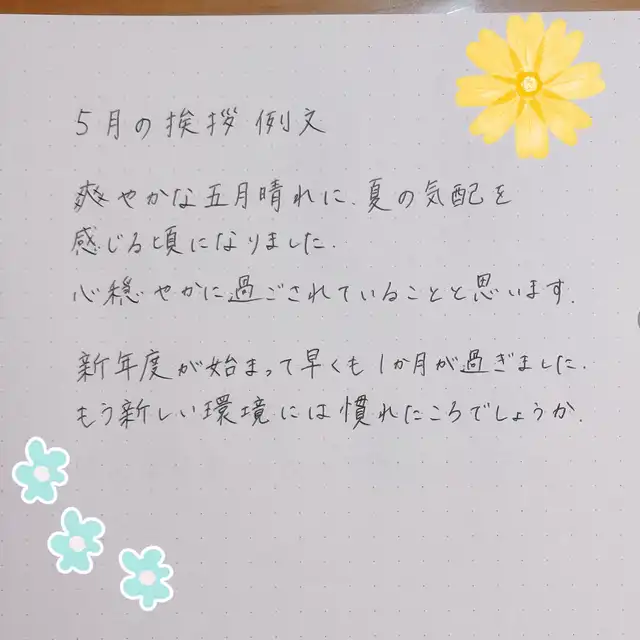 5月の挨拶 例文
爽やかな五月晴れに、夏の気配を
感じる頃になりました。
心穏やかに過ごされていることと思います。
新年度が始まって早くも1か月が過ぎました。
もう新しい環境には慣れたころでしょうか。